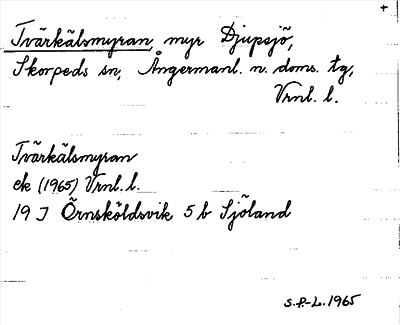 +
Tvärkälsmyran, myr Djupsjö,
Skorpeds sn, Ångermanl. n. doms. tg,
Vrnl. l.
Tvärkälsmyran
ek (1965) Vrnl. l.
19 J Örnsköldsvik 5 b Sjöland
S.P.-L. 1965